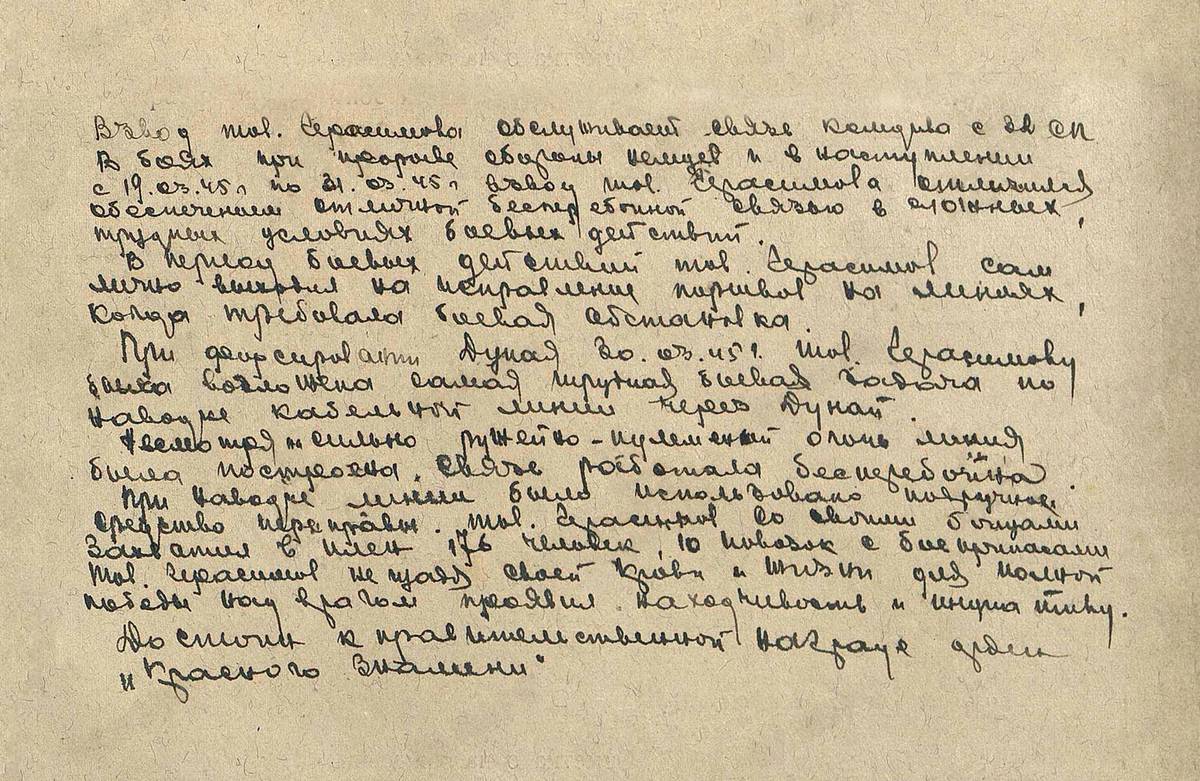 Взвод тов. Герасимова обслуживает связь комдива с 32 СП
В боях при прорыве обороны немцев и в наступлении
с 19.03.45г по 31.03.45г взвод тов. Герасимова отличился
обеспечением отличной бесперебойной связью в сложных,
трудных условиях боевых действий.
В период боевых действий тов. Герасимов сам
лично выходил на исправление порывов на линиях,
когда требовала боевая обстановка.
При форсировании Дуная 30.03.45г. тов. Герасимову
была возложена самая трудная боевая задача по
наводке кабельной линии через Дунай.
Несмотря на сильно ружейно-пулеметный огонь линия
была построена. Связь работала бесперебойна.
При наводке линии было использовано подручное
средство переправы. тов. Герасимов со своими бойцами
захватил в плен 176 человек, 10 повозок с боеприпасами
тов. Герасимов не щадя своей крови и жизни для полной
победы над врагом проявил находчивость и инициативу.
Достоин к правительственной награде орден
"Красного Знамени"